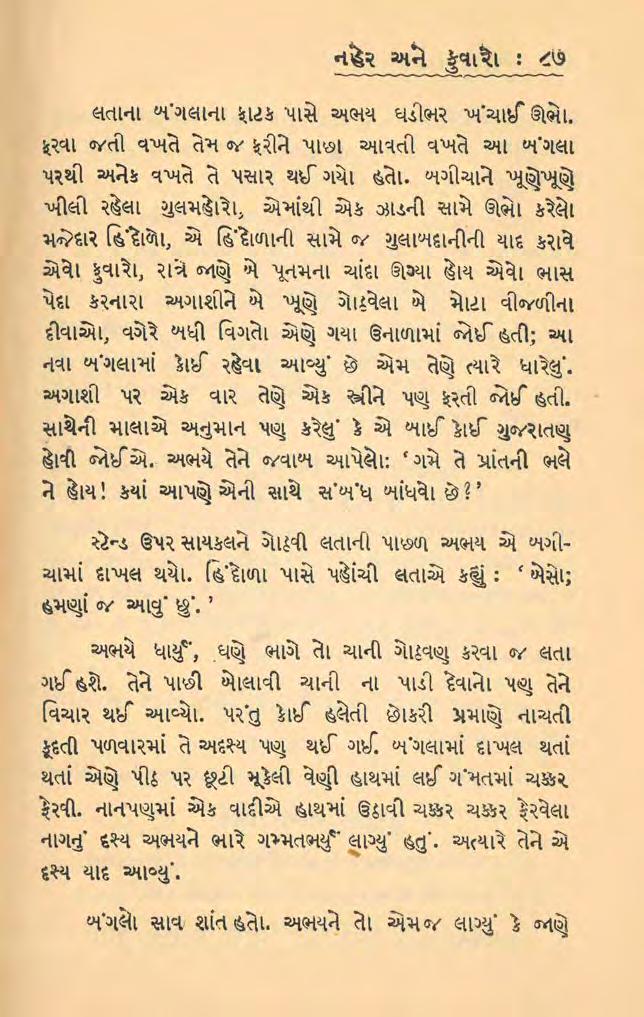 નહેર અને ફુવારો : ૮૭
લતાના બંગલાના ફાટક પાસે અભય ઘડીભર ખંચાઈ ઊભો.
ફરવા જતી વખતે તેમ જ ફરીને પાછા આવતી વખતે આ બંગલા
પરથી અનેક વખતે તે પસાર થઈ ગયો હતો. બગીચાને ખૂણેખૂણે
ખીલી રહેલા ગુલમહોરો, એમાંથી એક ઝાડની સામે ઊભો કરેલો
મજેદાર હિંદોળો, એ હિંદોળાની સામે જ ગુલાબદાનીની યાદ કરાવે
એવો ફુવારો, રાત્રે જાણે બે પૂનમના ચાંદા ઊગ્યા હોય એવો ભાસ
પેદા કરનારા અગાશીને બે ખૂણે ગોઠવેલા બે મોટા વીજળીના
દીવાઓ, વગેરે બધી વિગતો એણે ગયા ઉનાળામાં જોઈ હતી; આ
નવા બંગલામાં કોઈ રહેવા આવ્યું છે એમ તેણે ત્યારે ધારેલું.
અગાશી પર એક વાર તેણે એક સ્ત્રીને પણ ફરતી જોઈ હતી.
સાથેની માલાએ અનુમાન પણ કરેલું કે એ બાઈ કોઈ ગુજરાતણ
હોવી જોઈએ. અભયે તેને જવાબ આપેલો: ‘ગમે તે પ્રાંતની ભલે
ને હોય! કયાં આપણે એની સાથે સંબંધ બાંધવો છે?’
સ્ટેન્ડ ઉપર સાયકલને ગોઠવી લતાની પાછળ અભય એ બગી-
ચામાં દાખલ થયો. હિંદોળા પાસે પહોંચી લતાએ કહ્યું : ‘બેસો;
હમણાં જ આવું છું.’
અભયે ધાર્યું, ઘણે ભાગે તો ચાની ગોઠવણ કરવા જ લતા
ગઈ હશે. તેને પાછી બોલાવી ચાની ના પાડી દેવાનો પણ તેને
વિચાર થઈ આવ્યો. પરંતુ કોઈ હલેતી છોકરી પ્રમાણે નાચતી
કૂદતી પળવારમાં તે અદૃશ્ય પણ થઈ ગઈ. બંગલામાં દાખલ થતાં
થતાં એણે પીઠ પર છૂટી મૂકેલી વેણી હાથમાં લઈ ગંમતમાં ચક્કર
ફેરવી. નાનપણમાં એક વાદીએ હાથમાં ઉઠાવી ચક્કર ચક્કર ફેરવેલા
નાગનું દૃશ્ય અભયને ભારે ગમ્મતભર્યું લાગ્યું હતું. અત્યારે તેને એ
દૃશ્ય યાદ આવ્યું.
બંગલો સાવ શાંત હતો. અભયને તો એમજ લાગ્યું કે જાણે